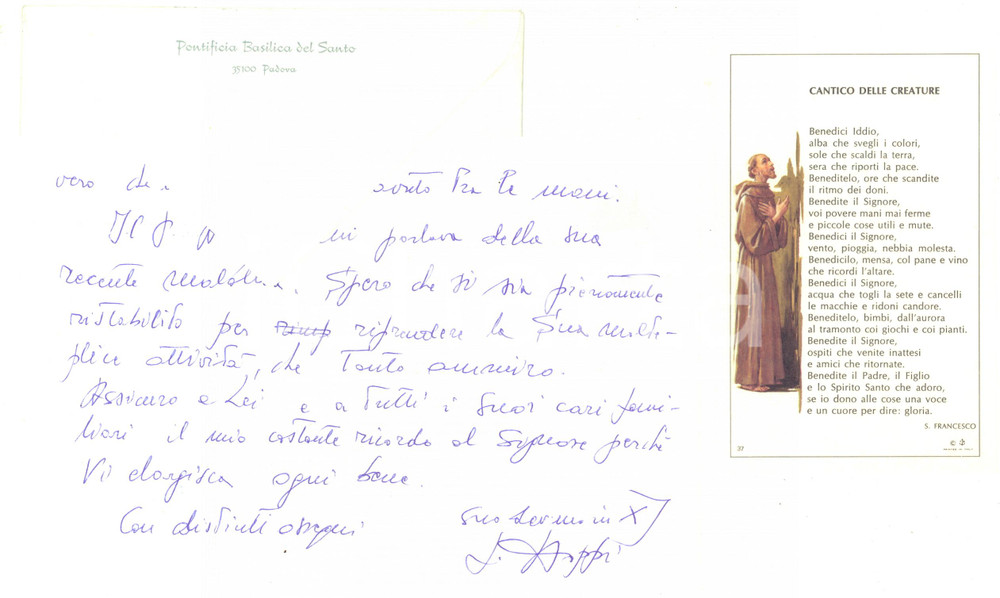 Pontificia Basilica del Santo
35100 Padova
vero che avuto tra le mani.
mi parlava della sua
recente malattia. Spero che si sia pienamente
ristabilito per riprendere la Sua molte-
plice attività, che tanto ammiro.
Assicuro a Lei e a tutti i Suoi cari fami-
liari il mio costante ricordo al Signore perché
Vi elargisca ogni bene.
Con distinti ossequi
suo dev.mo in X
CANTICO DELLE CREATURE
Benedici Iddio,
alba che svegli i colori,
sole che scaldi la terra,
sera che riporti la pace.
Beneditelo, ore che scandite
il ritmo dei doni.
Benedite il Signore,
voi povere mani mai ferme
e piccole cose utili e mute.
Benedici il Signore,
vento, pioggia, nebbia molesta.
Benedicilo, mensa, col pane e vino
che ricordi l'altare.
Benedici il Signore,
acqua che togli la sete e cancelli
le macchie e ridoni candore.
Beneditelo, bimbi, dall'aurora
al tramonto coi giochi e coi pianti.
Benedite il Signore,
ospiti che venite inattesi
e amici che ritornate.
Benedite il Padre, il Figlio
e lo Spirito Santo che adoro,
se io dono alle cose una voce
e un cuore per dire: gloria.
S. FRANCESCO
37
©
PRINTED IN ITALY